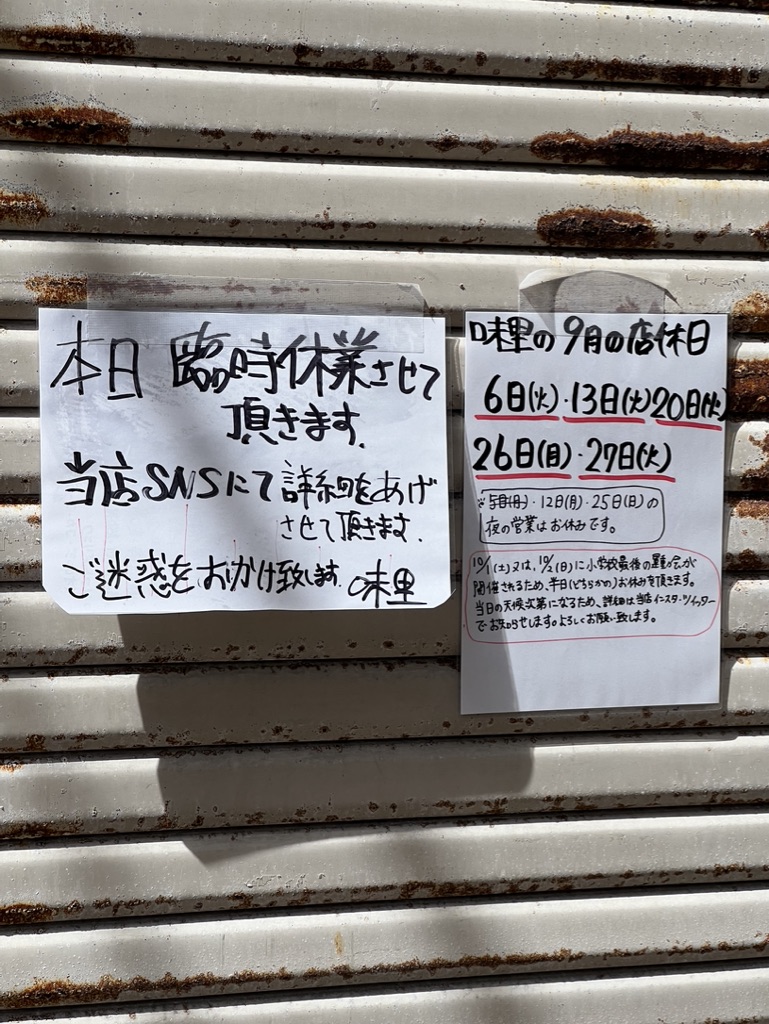 本日 臨時休業させて
頂きます。
当店SNSにて詳細をあげ
させて頂きます。
ご迷惑をおかけ致します。味里
味里の9月の店休日
6日(火)・13日(火)20日(火)
26日(月)・27日(火)
※5日(月)・12日(月)・25日(日)の
夜の営業はお休みです。
10/1(土)又は、10/2(日)に小学校最後の運動会が
開催されるため、半日(どちらかの)お休みを頂きます。
当日の天候次第になるため、詳細は当店インスタ・ツイッター
でお知らせします。よろしくお願い致します。